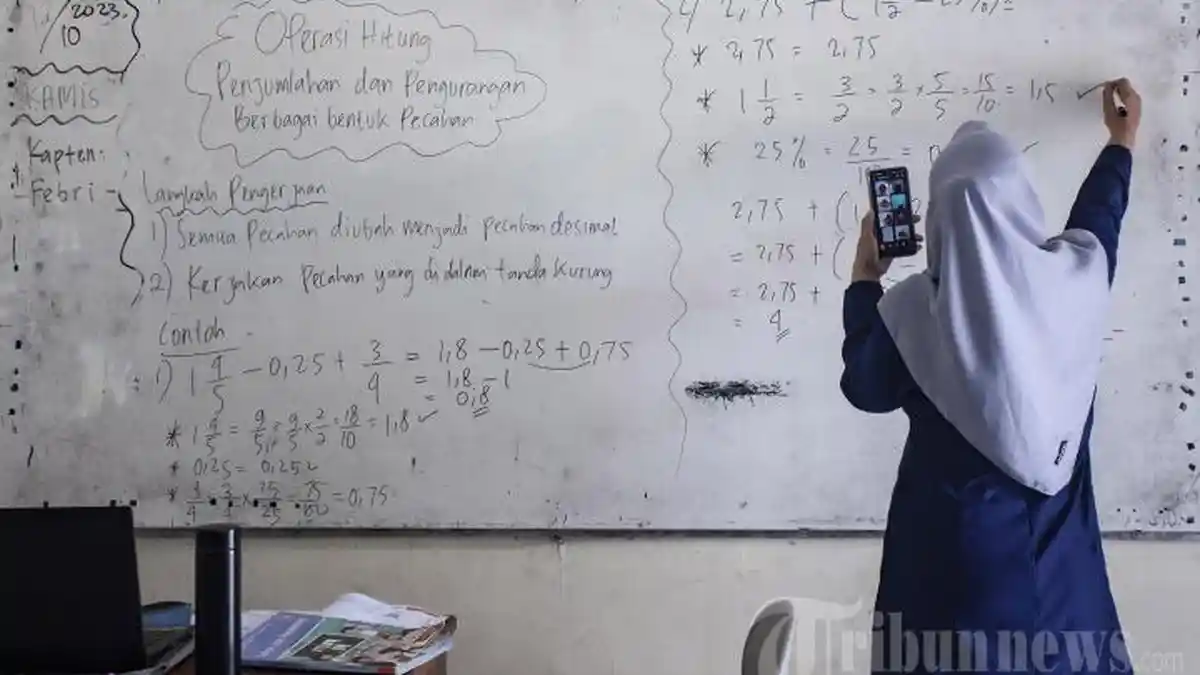 /2023.
10
KAMIS
Kapten:
Febri -
Operasi Hitung
Penjumlahan dan Pengurangan
Berbagai bentuk Pecahan
Langkah Pengerjaan
1) Semua Pecahan diubah menjadi pecahan desimal
2) Kerjakan Pecahan yang di dalam tanda kurung
Contoh
1) 1 4/5 - 0,25 + 3/4 = 1,8 - 0,25 + 0,75
= 1,8 - 1
= 0,8
* 1 4/5 = 9/5 = 9/5 × 2/2 = 18/10 = 1,8 ✓
* 0,25 = 0,25 ✓
* 3/4 = 3/4 × 25/25 = 75/100 = 0,75
2) 2,75 + (1 1/2 - 25%) =
* 2,75 = 2,75
* 1 1/2 = 3/2 = 3/2 × 5/5 = 15/10 = 1,5 ✓
* 25% = 25 = 0 ✓
2,75 + (1
= 2,75 + (
= 2,75 +
= 4
Tribunnews.com